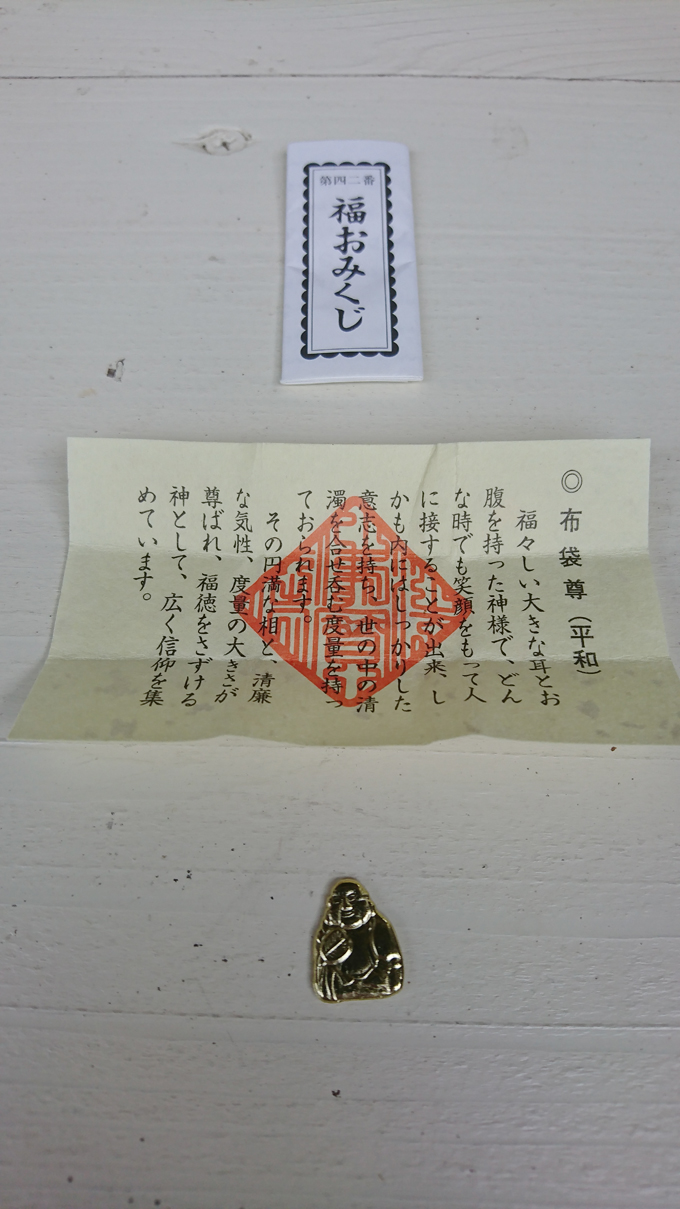 第四二番
福おみくじ
◎布袋尊（平和）
福々しい大きな耳とお
腹を持った神様で、どん
な時でも笑顔をもって人
に接することが出来、し
かも内にはしっかりした
意志を持ち、世の中の清
濁を合せ呑む度量を持っ
ておられます。
その円満な相と、清廉
な気性、度量の大きさが
尊ばれ、福徳をさずける
神として、広く信仰を集
めています。